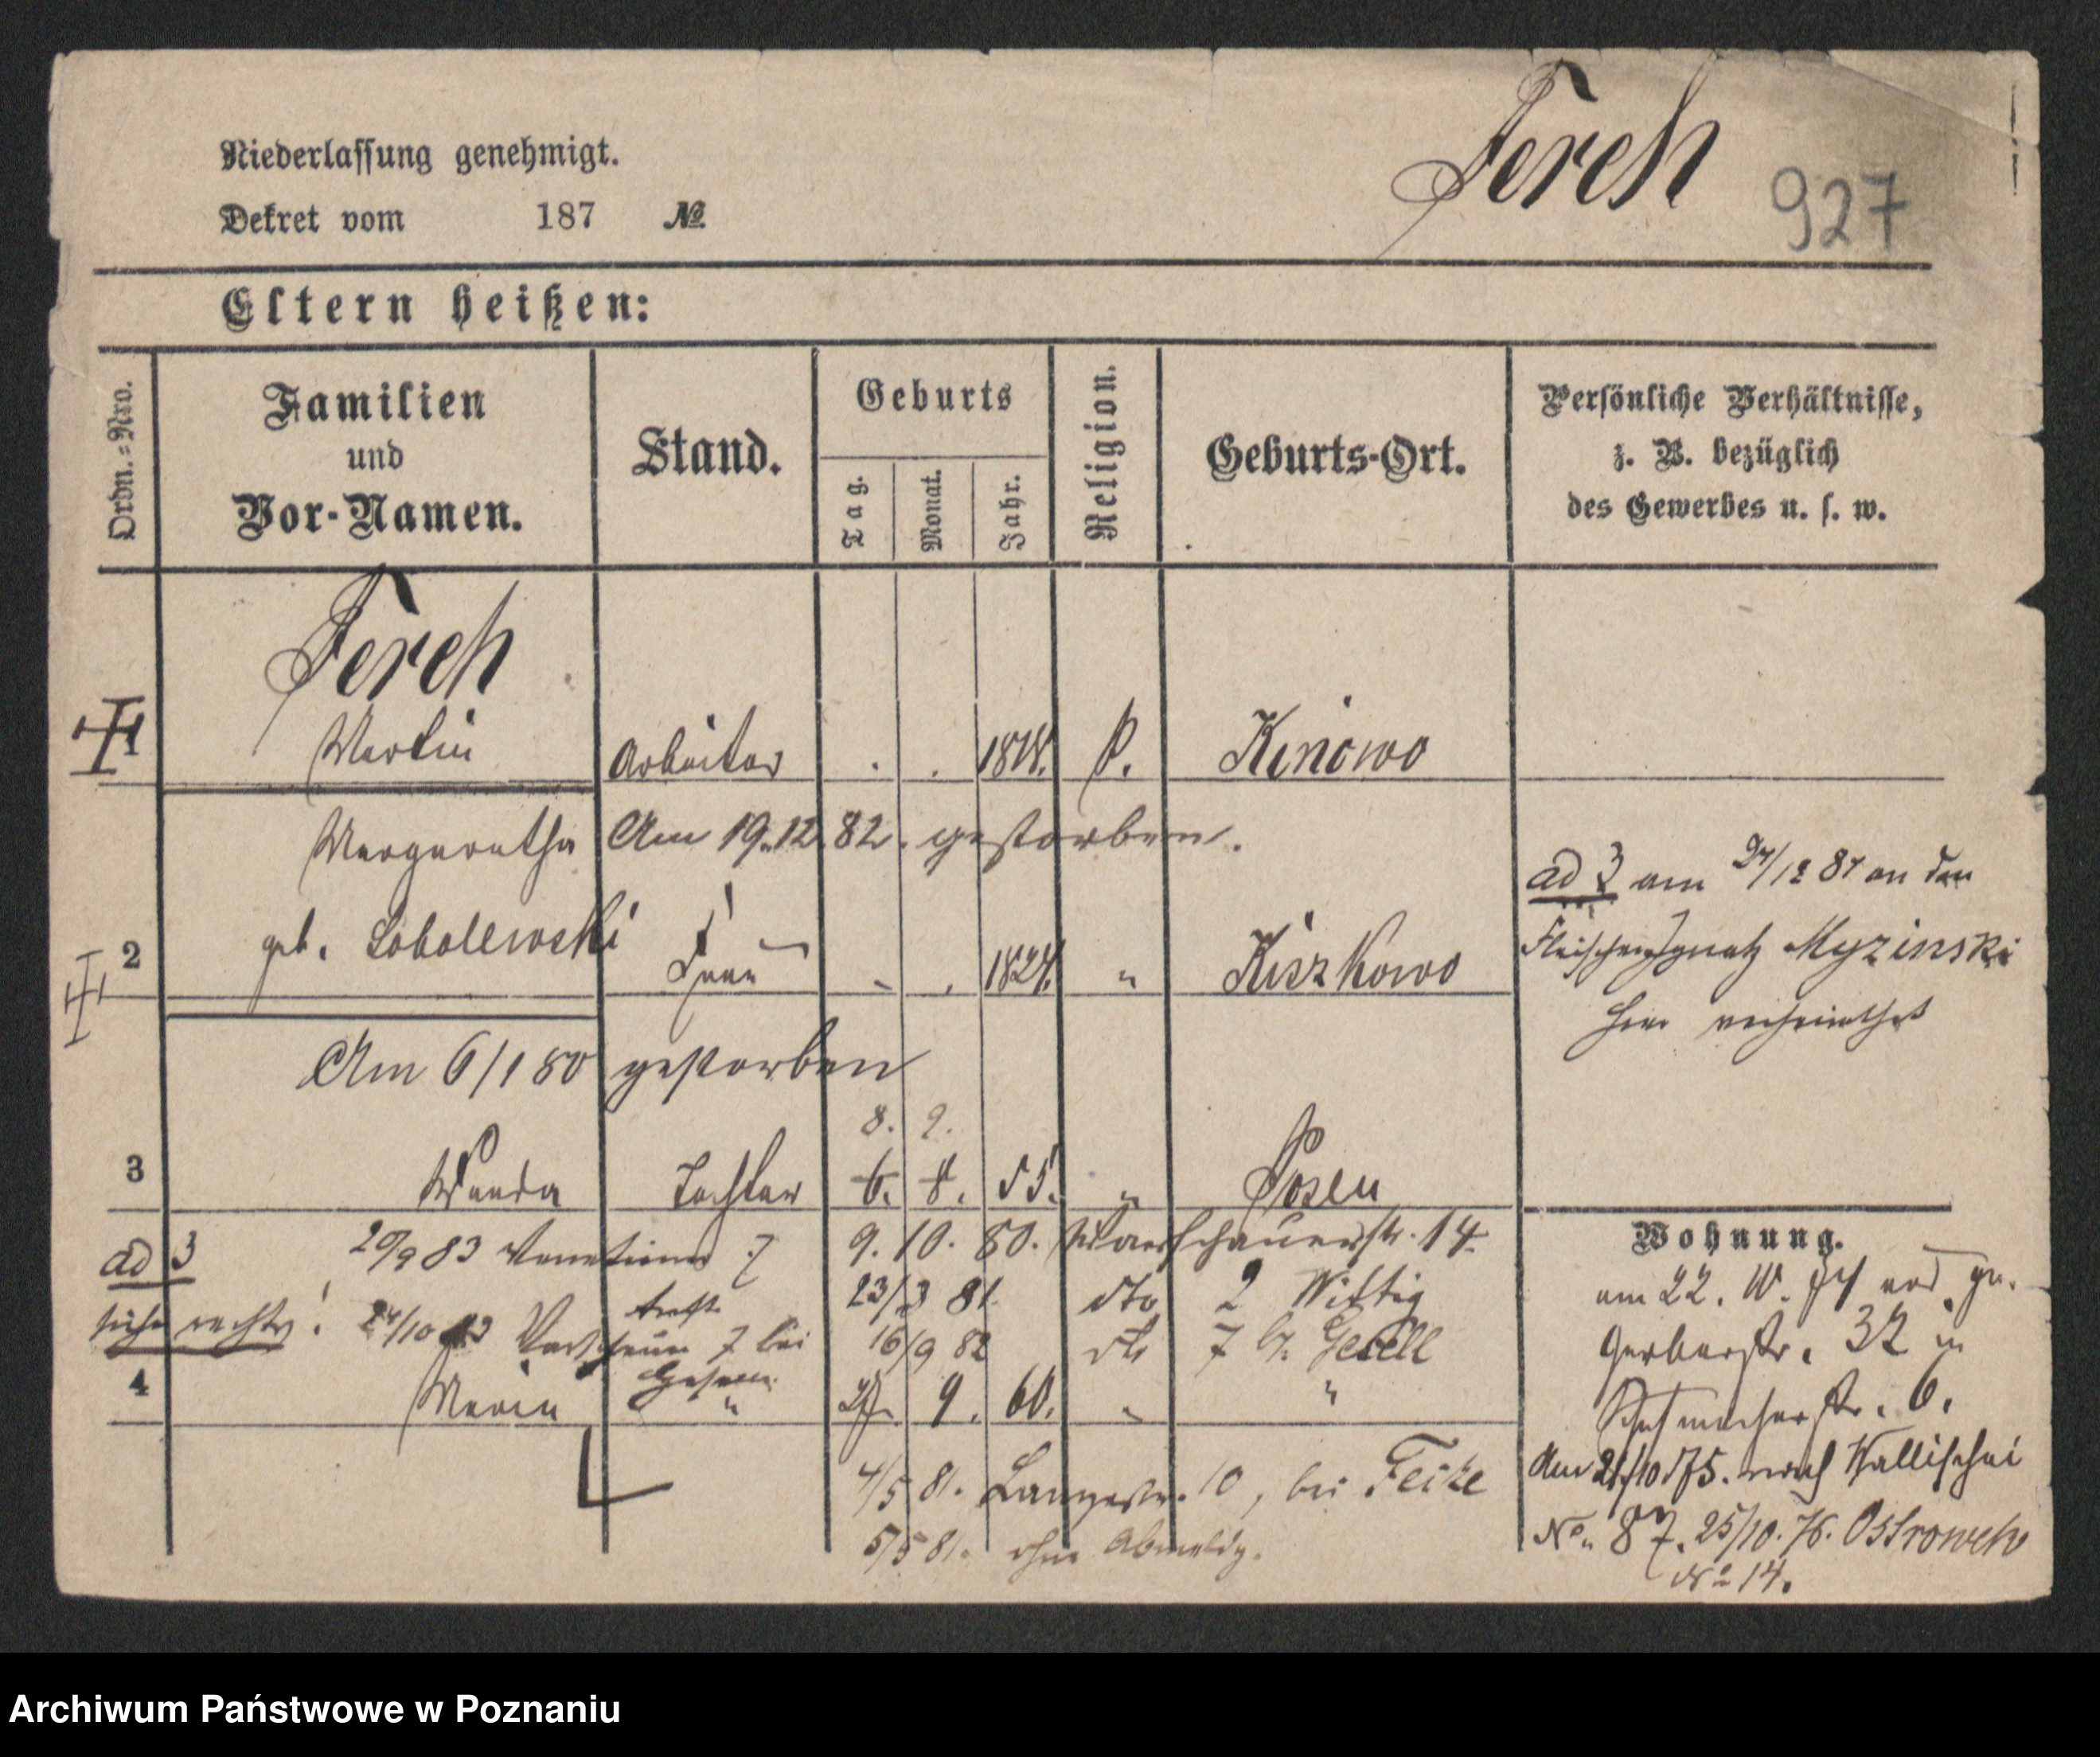 Niederlassung genehmigt.
Dekret vom 187 №
Ferch
927
Eltern heißen:
Ordn.=Nro.
Familien
und
Vor-Namen.
Stand.
Geburts
Tag.
Monat.
Jahr.
Religion.
Geburts-Ort.
Persönliche Verhältnisse,
z. B. bezüglich
des Gewerbes u. s. w.
Ferch
1 Martin Arbeiter . . 1818. k. Kinowo
Margaretha Am 19.12.82. gestorben.
2 geb. Sobolewski Frau - . 1824. " Kiszkowo
Am 6/1 80 gestorben
8. 9.
3 Wanda Tochter 6. 8. 55. " Posen
ad 3 am 27/12 87 an den
Fleischer Ignatz Myzinski
hier verheirathet
ad 3 29/9 83 7 9. 10. 80. Warschauerstr. 14.
23/3 81. dto 2 Wittig
siehe rechts! 24/10 83 7 bei 16/9 82 dto 7 b. Gesell
4 Maria " 9. 60. " "
4/5 81. Langestr. 10, bei Feike
5/5 81. ohne Abmeldg.
Wohnung.
am 22. 10. 74 von gr.
Gerberstr. 32 in
Schuhmacherstr. 6.
Am 21/10 75. nach Wallischei
No. 87. 25/10. 76. Ostrowek
No 14.
Archiwum Państwowe w Poznaniu